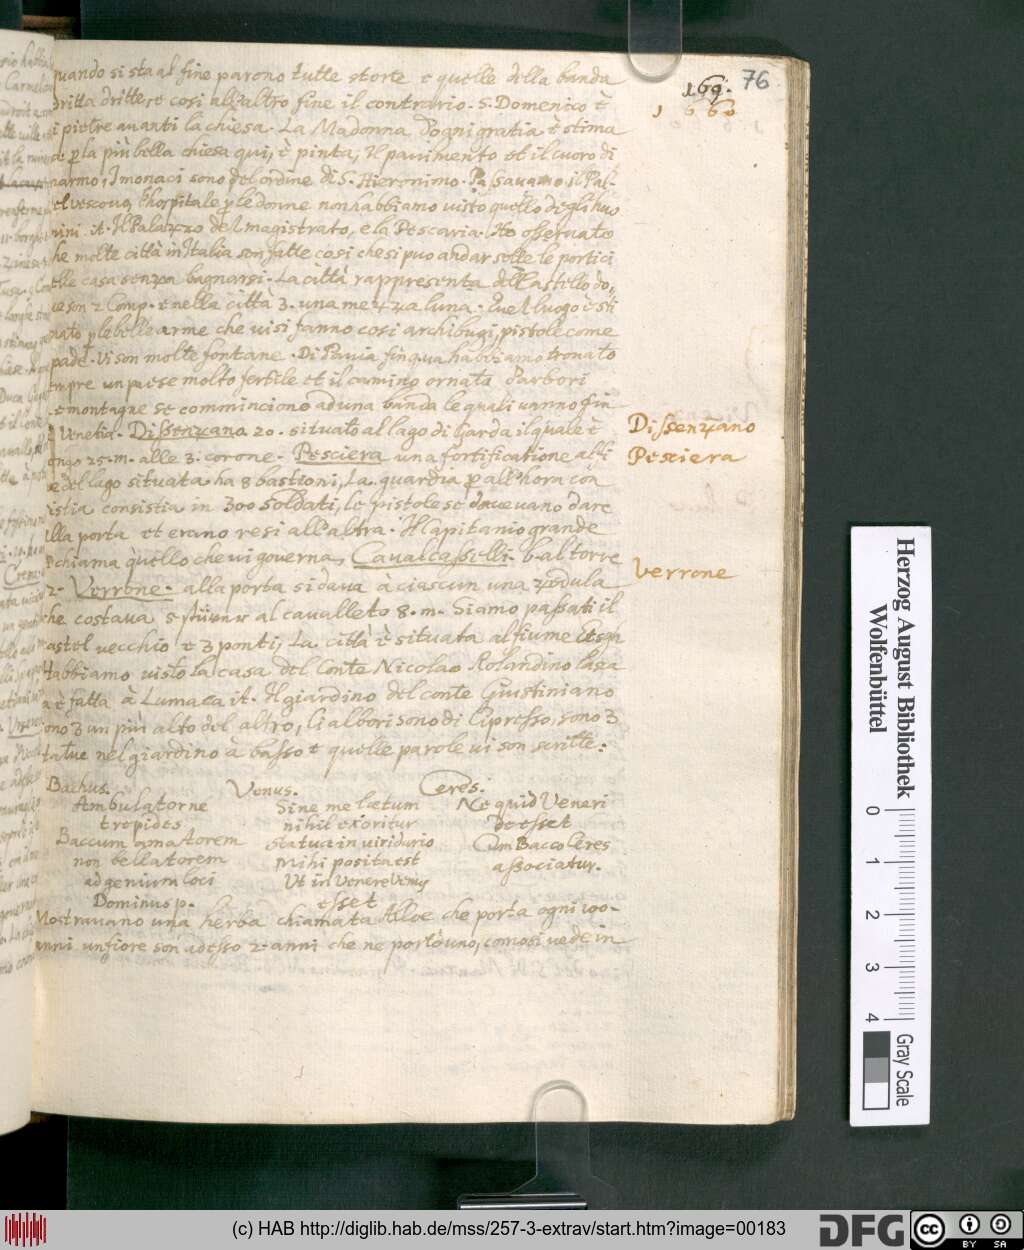 76
169.
1660
quando si sta al fine parono tutte storte e quelle della banda
dritta dritte, et cosi all'altro fine il contrario. S. Domenico è
di pietre auanti la chiesa. La Madonna d'ogni gratia è stima
p la più bella chiesa qui, è pinta, Il pauimento et il cuoro di
marmo, I monaci sono del ordine di S. Hieronimo. Passauamo il Pal-
del vescouo, l'hospitale p le donne non habbiamo uisto quello degli huo
mini it. Il Palazzo del magistrato, e la Pescaria. Ho osseruato
che molte città in Italia son fatte cosi che si puo andar sotto le portici
delle casa senza bagnarsi. La città rappresenta
son 2 Comp. e nella città 3. una mezza luna. Quel luogo è sti
mato p le belle arme che ui si fanno cosi archibugi, pistole come
spade. Vi son molte fontane. Di Pauia fin qua habbiamo trouato
sempre un paese molto fertile et il camino ornata d'arbori
e montagne se comminciono ad una banda le quali uanno fin
à Venetia. Dissenzano 20. situato al lago di Garda il quale è
longo 25. m. alle 3. corone. Pesciera una fortificatione al fi
ne del lago situata ha 8 bastioni, La guardia p all'hora con
sistia consistia in 300 soldati, le pistole se doueuano dare
alla porta et erano resi all'altra. Il Capitanio grande
chiama quello che ui gouerna, Cavalcasselli. b. al torre
2. Verrone. alla porta si daua à ciascun una zedula
che costaua al cavalleto 8. m. Siamo passati il
castel uecchio e 3 ponti, La città è situata al fiume Etsch
Habbiamo uisto la casa del Conte Nicolao Rolandino la sca
la è fatta à Lumaca it. Il giardino del conte Giustiniano
sono 3 un più alto del altro, li albori sono di Cipresso, sono 3
statue nel giardino à basso e quelle parole ui son scritte:
Dissenzano
Pesciera
Verrone
Bachus. Venus. Ceres.
Ambulatorne
trepides
Baccum amatorem
non bellatorem
ad genium loci
Dominus p.
Sine me lætum
nihil exoritur
statua in uiridario
Mihi posita est
Ut in Venere Venus
esset
Ne quid Veneri
deesset
Cum Bacco Ceres
associatur.
Mostrauano una herba chiamata Alloe che porta ogni 100.
anni un fiore son adesso 2. anni che ne portouao, como si uede in
Herzog August Bibliothek
Wolfenbüttel
0 1 2 3 4
Gray Scale
(c) HAB http://diglib.hab.de/mss/257-3-extrav/start.htm?image=00183
DFG
cc BY SA